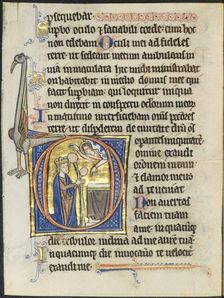 psequebar
Supbo oculo & insaciabili corde: cum hoc
non edebam Oculi mei ad fideles
terre ut sedeant mecum ambulans in
uia inmaculata hic michi ministrabat
Non habitabit in medio domus mee qui
facit supbiam: qui loquitur iniqua
non direxit in conspectu oculorum meor
In matutino interficiebam omnes
terre ut disperderem de ciuitate dni om
operantes iniquitatē
exaudi
orationem meam
& clamor meus
ad te ueniat
Non auertas
faciem tuam
a me: inquacūq;
die tribulor inclina ad me aurē tuā
In quacumq; die inuocauero te uelociter
exaudi me